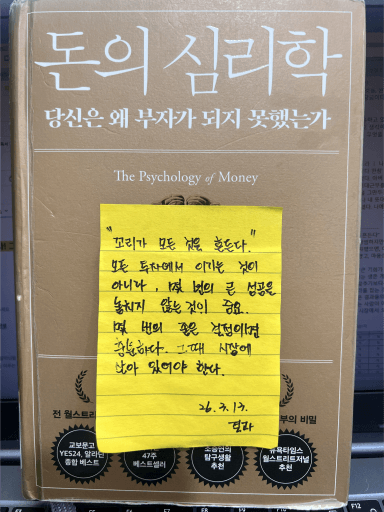 돈의 심리학
당신은 왜 부자가 되지 못했는가
The Psychology of Money
"꼬리가 모든 것을 흔든다."
모든 투자에서 이기는 것이
아니다, 몇 번의 큰 성공을
놓치지 않는것이 중요.
몇 번의 좋은 결정이면
충분하다. 그때 시장에
남아 있어야 한다.
26.3.13.
전 월스트리
부의 비밀
교보문고
YES24, 알라딘
종합 베스트
47주
베스트셀러
탐구생활
추천
뉴욕타임스
월스트리트저널
추천
F12